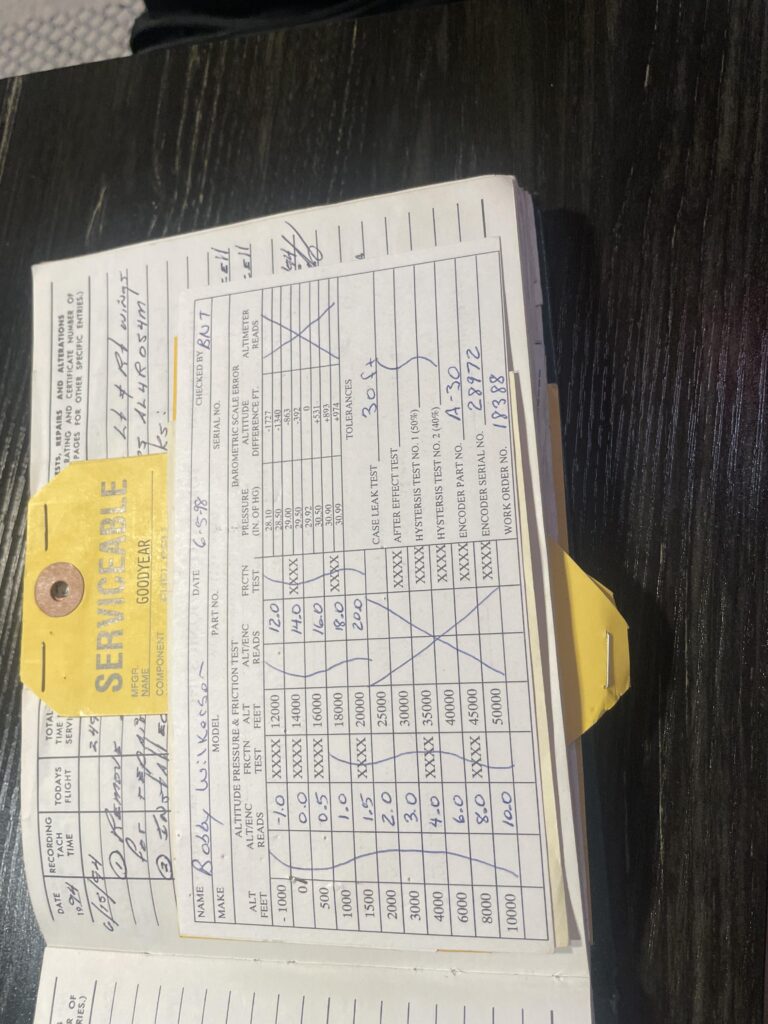 DATE
19 94
RECORDING
TACH
TIME
TODAYS
FLIGHT
TOTAL
TIME
SERV
TESTS, REPAIRS AND ALTERATIONS
RATING AND CERTIFICATE NUMBER OF
PAGES FOR OTHER SPECIFIC ENTRIES.)
6/15/94
245
① REMOVE
Lt & Rt wings
for repair
② INSTALLED
SERVICEABLE
MFGR.
NAME GOODYEAR
COMPONENT
NAME Bobby Wilkerson DATE 6-5-98 CHECKED BY BNT
MAKE MODEL PART NO. SERIAL NO.
ALTITUDE PRESSURE & FRICTION TEST BAROMETRIC SCALE ERROR
ALT FEET ALT/ENC READS FRCTN TEST ALT FEET ALT/ENC READS FRCTN TEST PRESSURE (IN. OF HG) ALTITUDE DIFFERENCE FT. ALTIMETER READS
- 1000 -1.0 XXXX 12000 12.0 28.10 -1727
0 0.0 XXXX 14000 14.0 XXXX 28.50 -1340
500 0.5 XXXX 16000 16.0 29.00 -863
1000 1.0 18000 18.0 XXXX 29.50 -392
1500 1.5 XXXX 20000 20.0 29.92 0
2000 2.0 25000 30.50 +531
3000 3.0 30000 XXXX 30.90 +893
4000 4.0 XXXX 35000 XXXX 30.99 +974
6000 6.0 40000 XXXX
8000 8.0 XXXX 45000 XXXX
10000 10.0 50000 XXXX
TOLERANCES
CASE LEAK TEST 30 ft
AFTER EFFECT TEST
HYSTERSIS TEST NO. 1 (50%)
HYSTERSIS TEST NO. 2 (40%)
ENCODER PART NO. A-30
ENCODER SERIAL NO. 28972
WORK ORDER NO. 18388